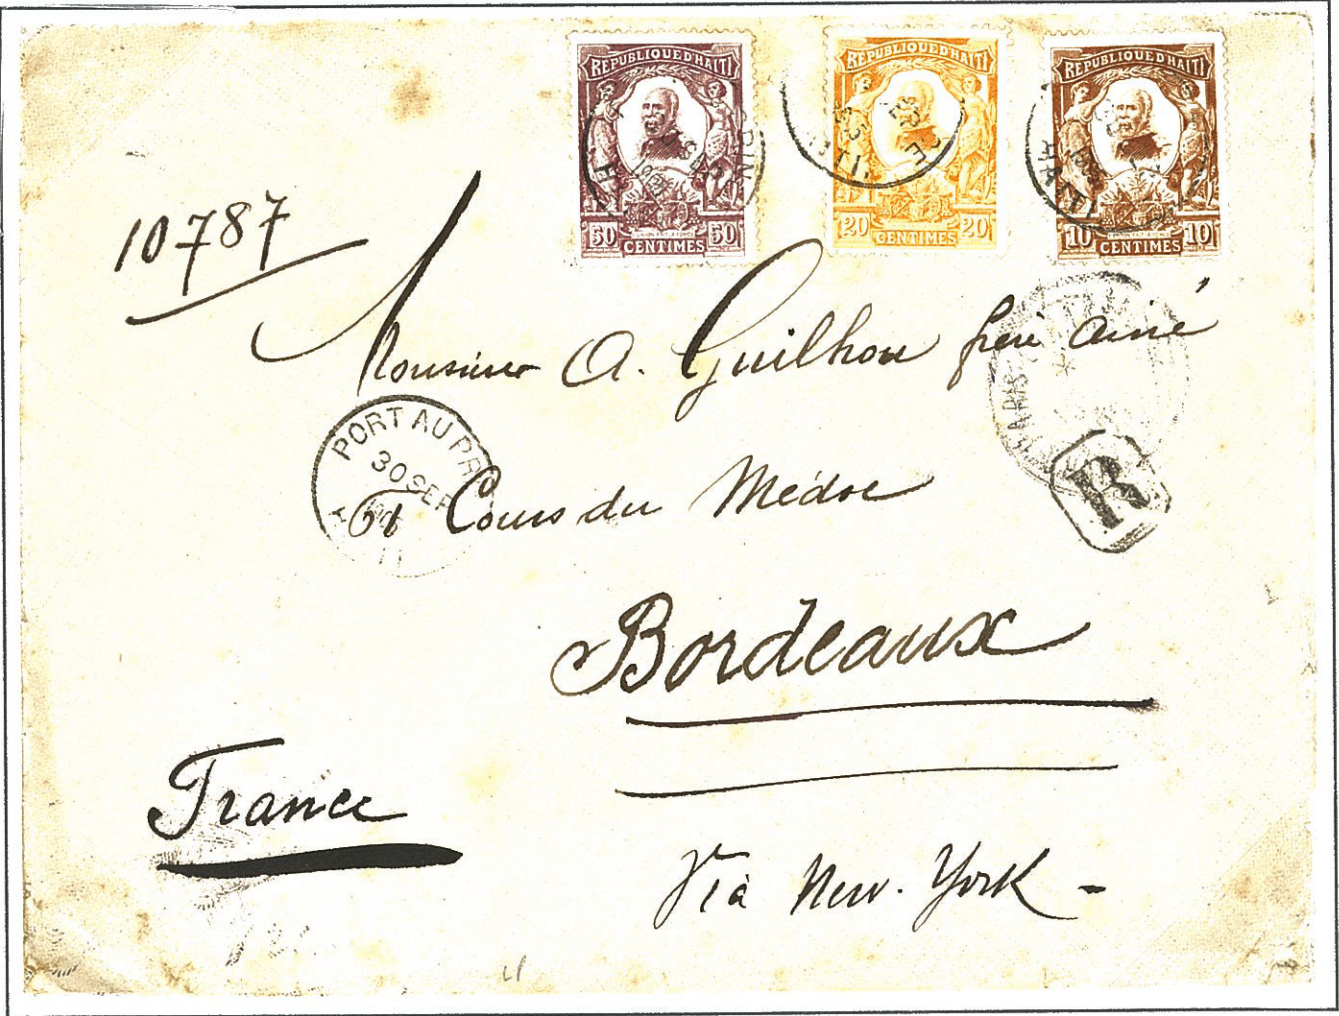 REPUBLIQUE D'HAITI
50 CENTIMES 50
REPUBLIQUE D'HAITI
20 CENTIMES 20
REPUBLIQUE D'HAITI
10 CENTIMES 10
HAITI
10787
Monsieur A. Guilhou frère ainé
PORT AU PR
30 SEP
61 Cours du Médoc
R
Bordeaux
France
Via New-York -